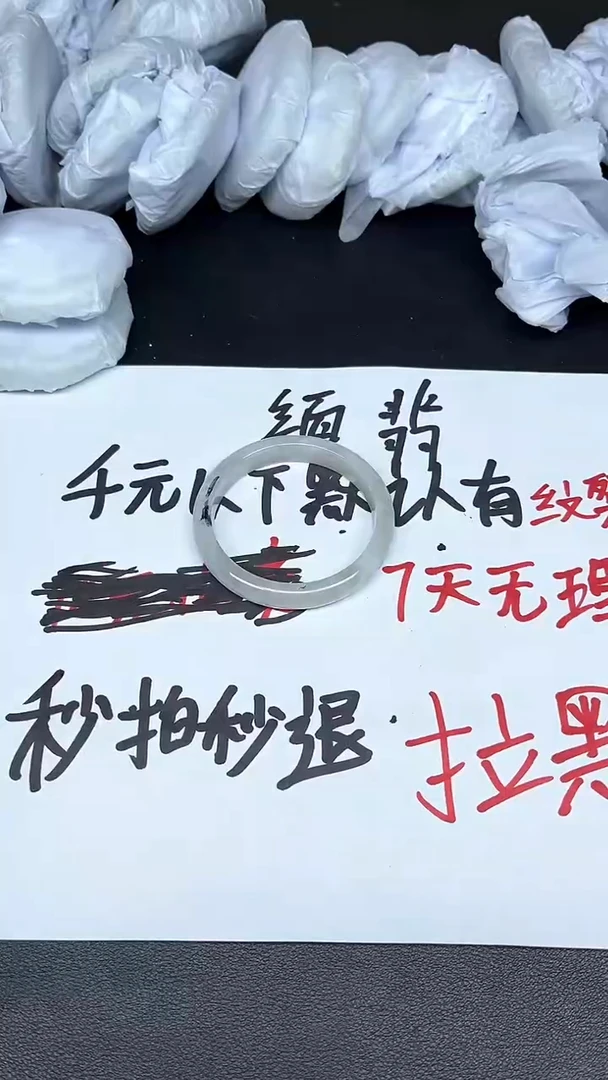 缅翡
千元以下默认有纹
7天无理
秒拍秒退 拉黑